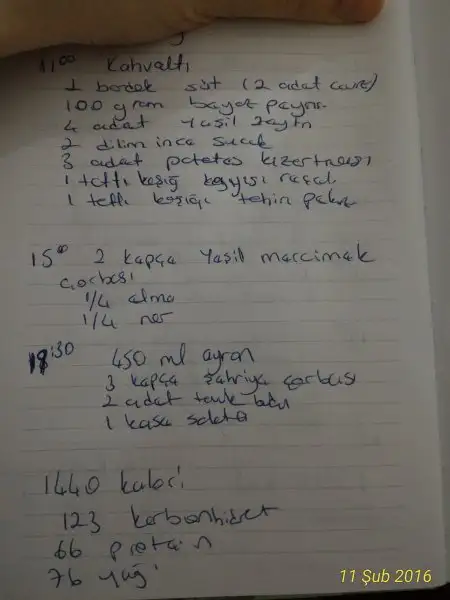 11:00 Kahvaltı
1 bardak süt (2 adet ceviz)
100 gram beyaz peynir
4 adet yeşil zeytin
2 dilim ince sucuk
3 adet patates kızartması
1 tatlı kaşığı kayısı reçeli
1 tatlı kaşığı tahin pekmez
15:00 2 kepçe yeşil mercimek
çorbası
1/4 elma
1/4 nar
18:30 450 ml ayran
3 kepçe şehriye çorbası
2 adet tavuk budu
1 kase salata
1440 kalori
123 karbonhidrat
66 protein
76 yağ
11 Şub 2016